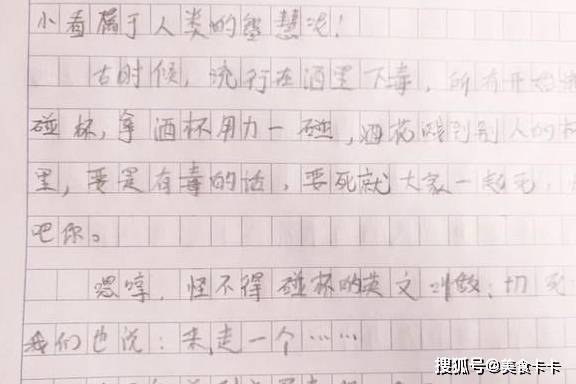 小看属于人类的智慧呢！
古时候，流行在酒里下毒，所有开始
碰杯，拿酒杯用力一碰，酒花 到别人的
里，要是有毒的话，要死就大家一起死，
吧你。
嗯哼，怪不得碰杯的英文叫做：切死
我们也说：来，走一个……
搜狐号@美食卡卡